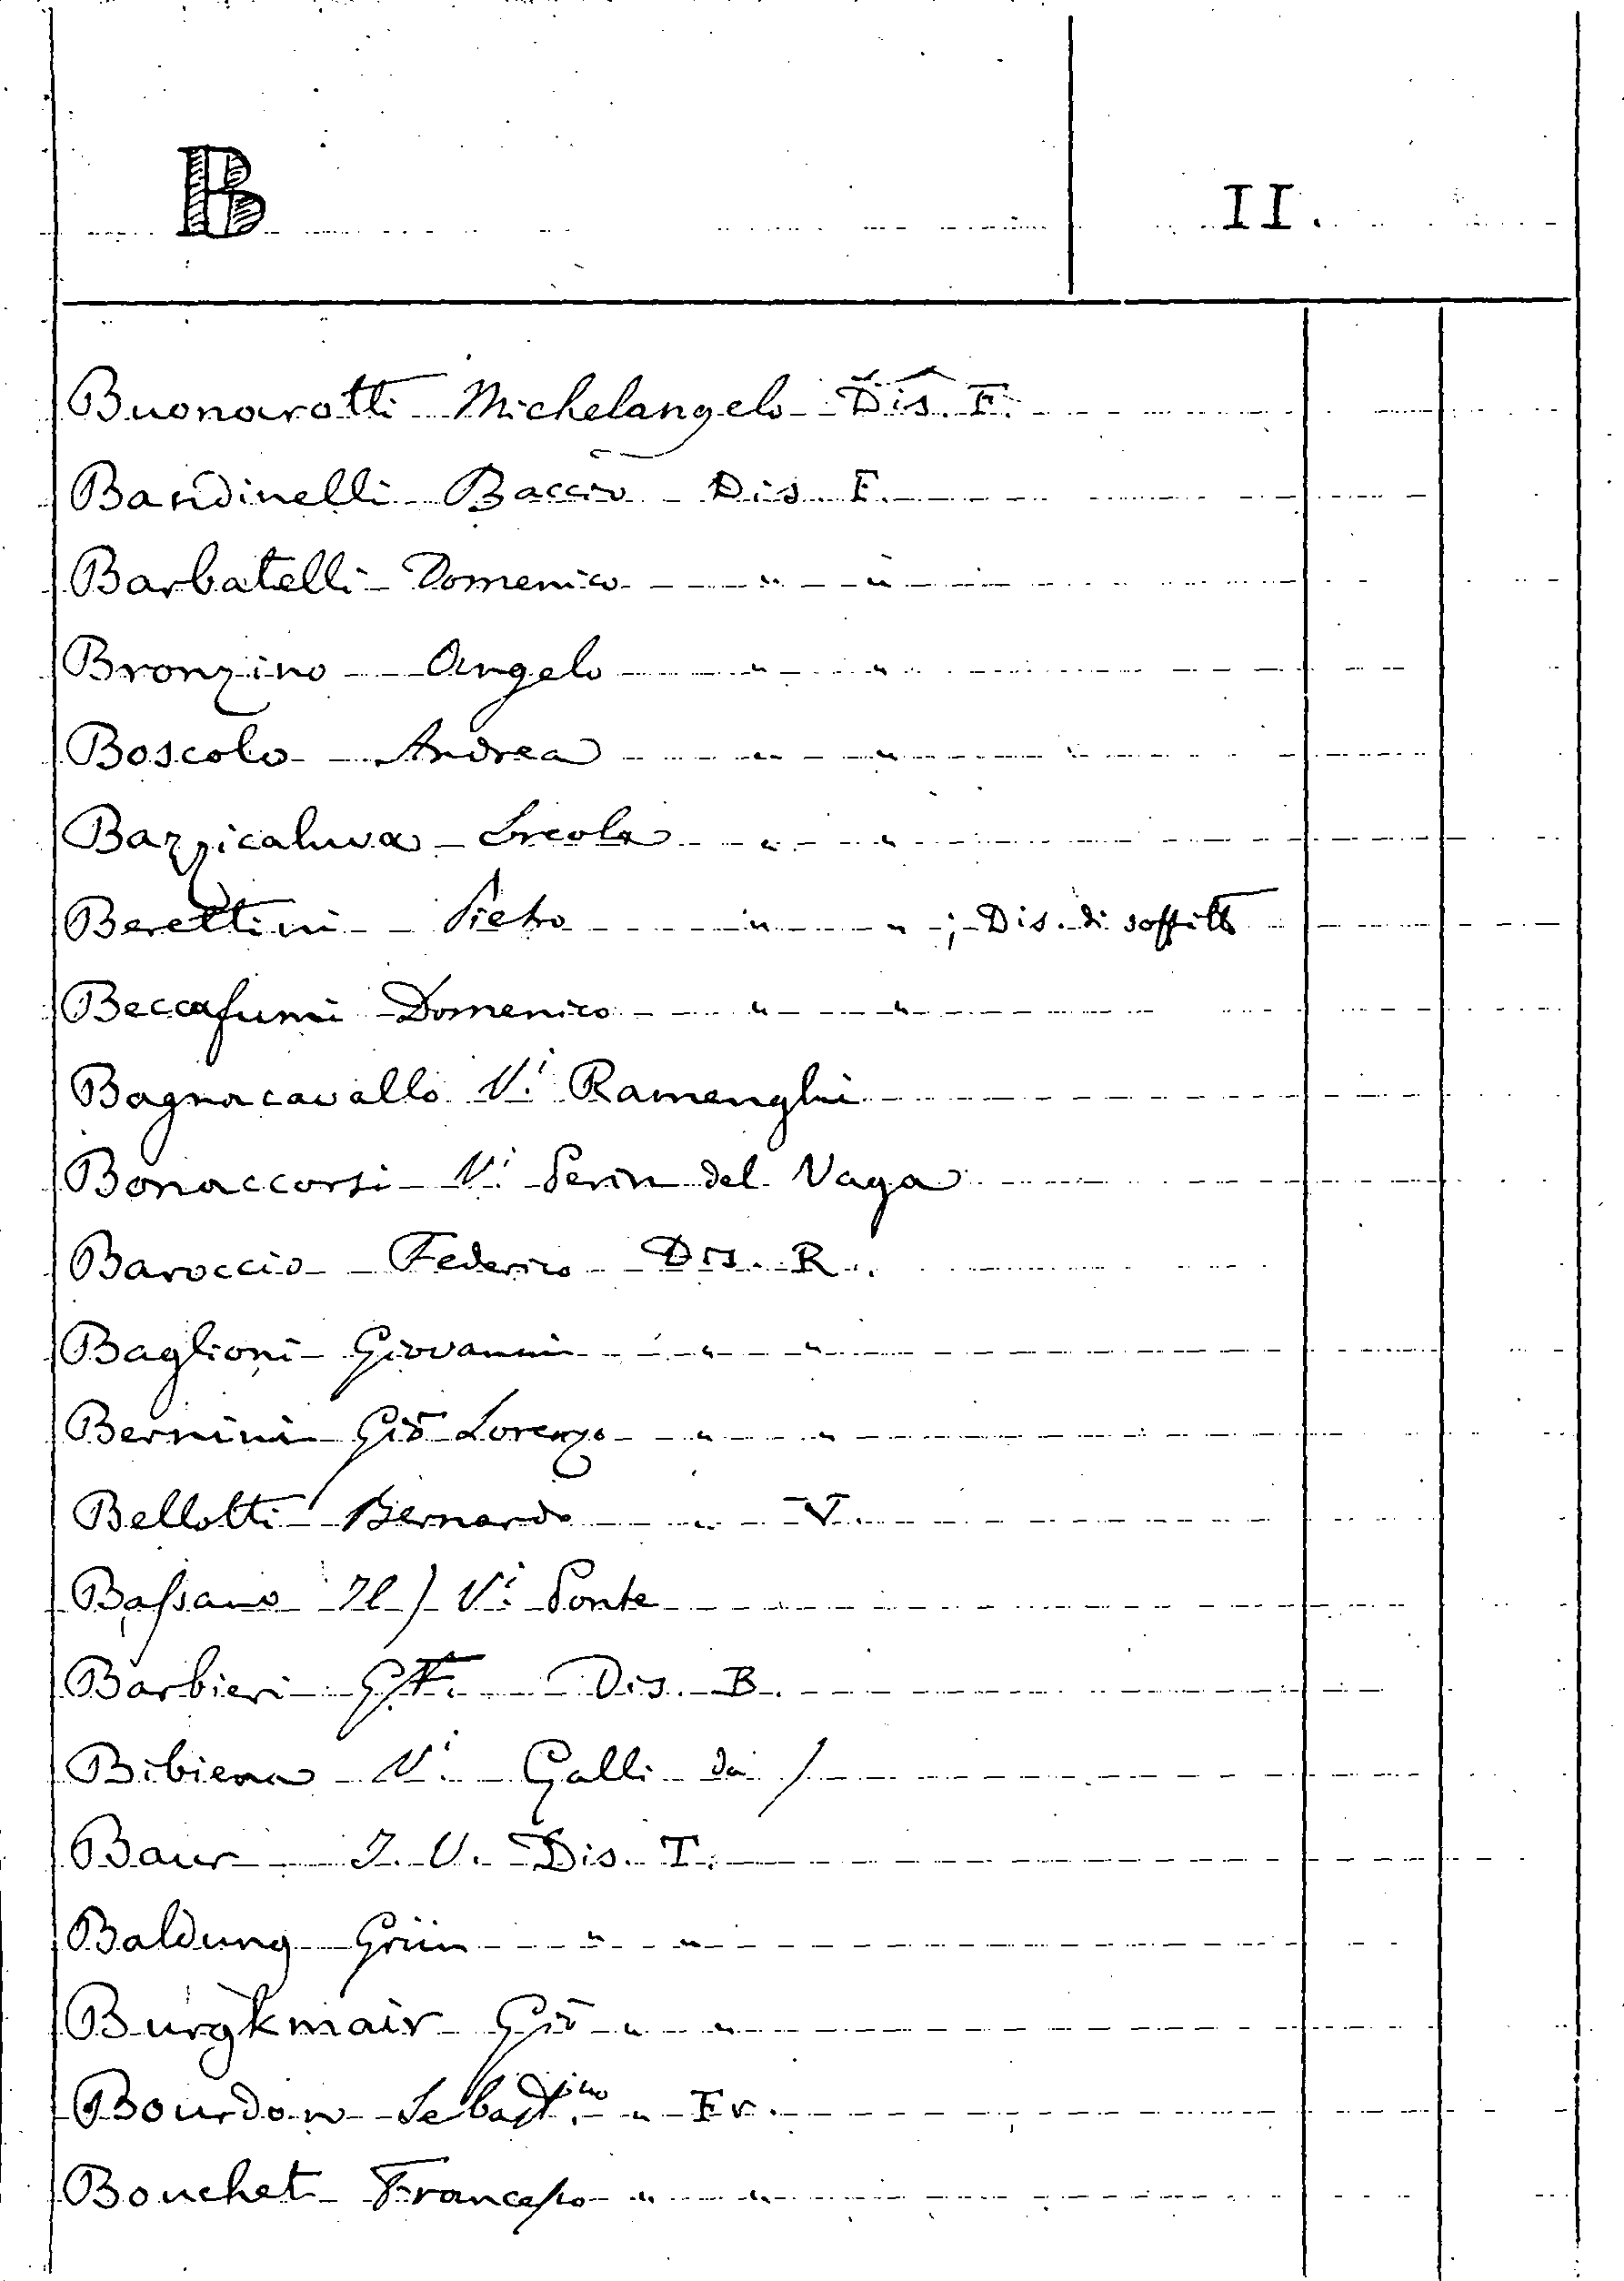 B
II.
Buonarotti Michelangelo Dis. F.
Bandinelli Baccio Dis. F.
Barbatelli Domenico " "
Bronzino Angelo " "
Boscolo Andrea " "
Bazzicaluva Ercole " "
Berettini Pietro " " ; Dis. di soffitti
Beccafumi Domenico " "
Bagnacavallo V.i Ramenghi
Bonaccorsi V.i Perin del Vaga
Baroccio Federico Dis. R.
Baglioni Giovanni " "
Bernini Gio Lorenzo " "
Bellotti Bernardo " V.
Bassano Il) V.i Ponte
Barbieri G. F. Dis. B.
Bibiena V.i Galli da /
Baur I. U. Dis. T.
Baldung Grün " "
Burgkmair Gio " "
Bourdon Sebast.ino " Fr.
Bouchet Francesco " "